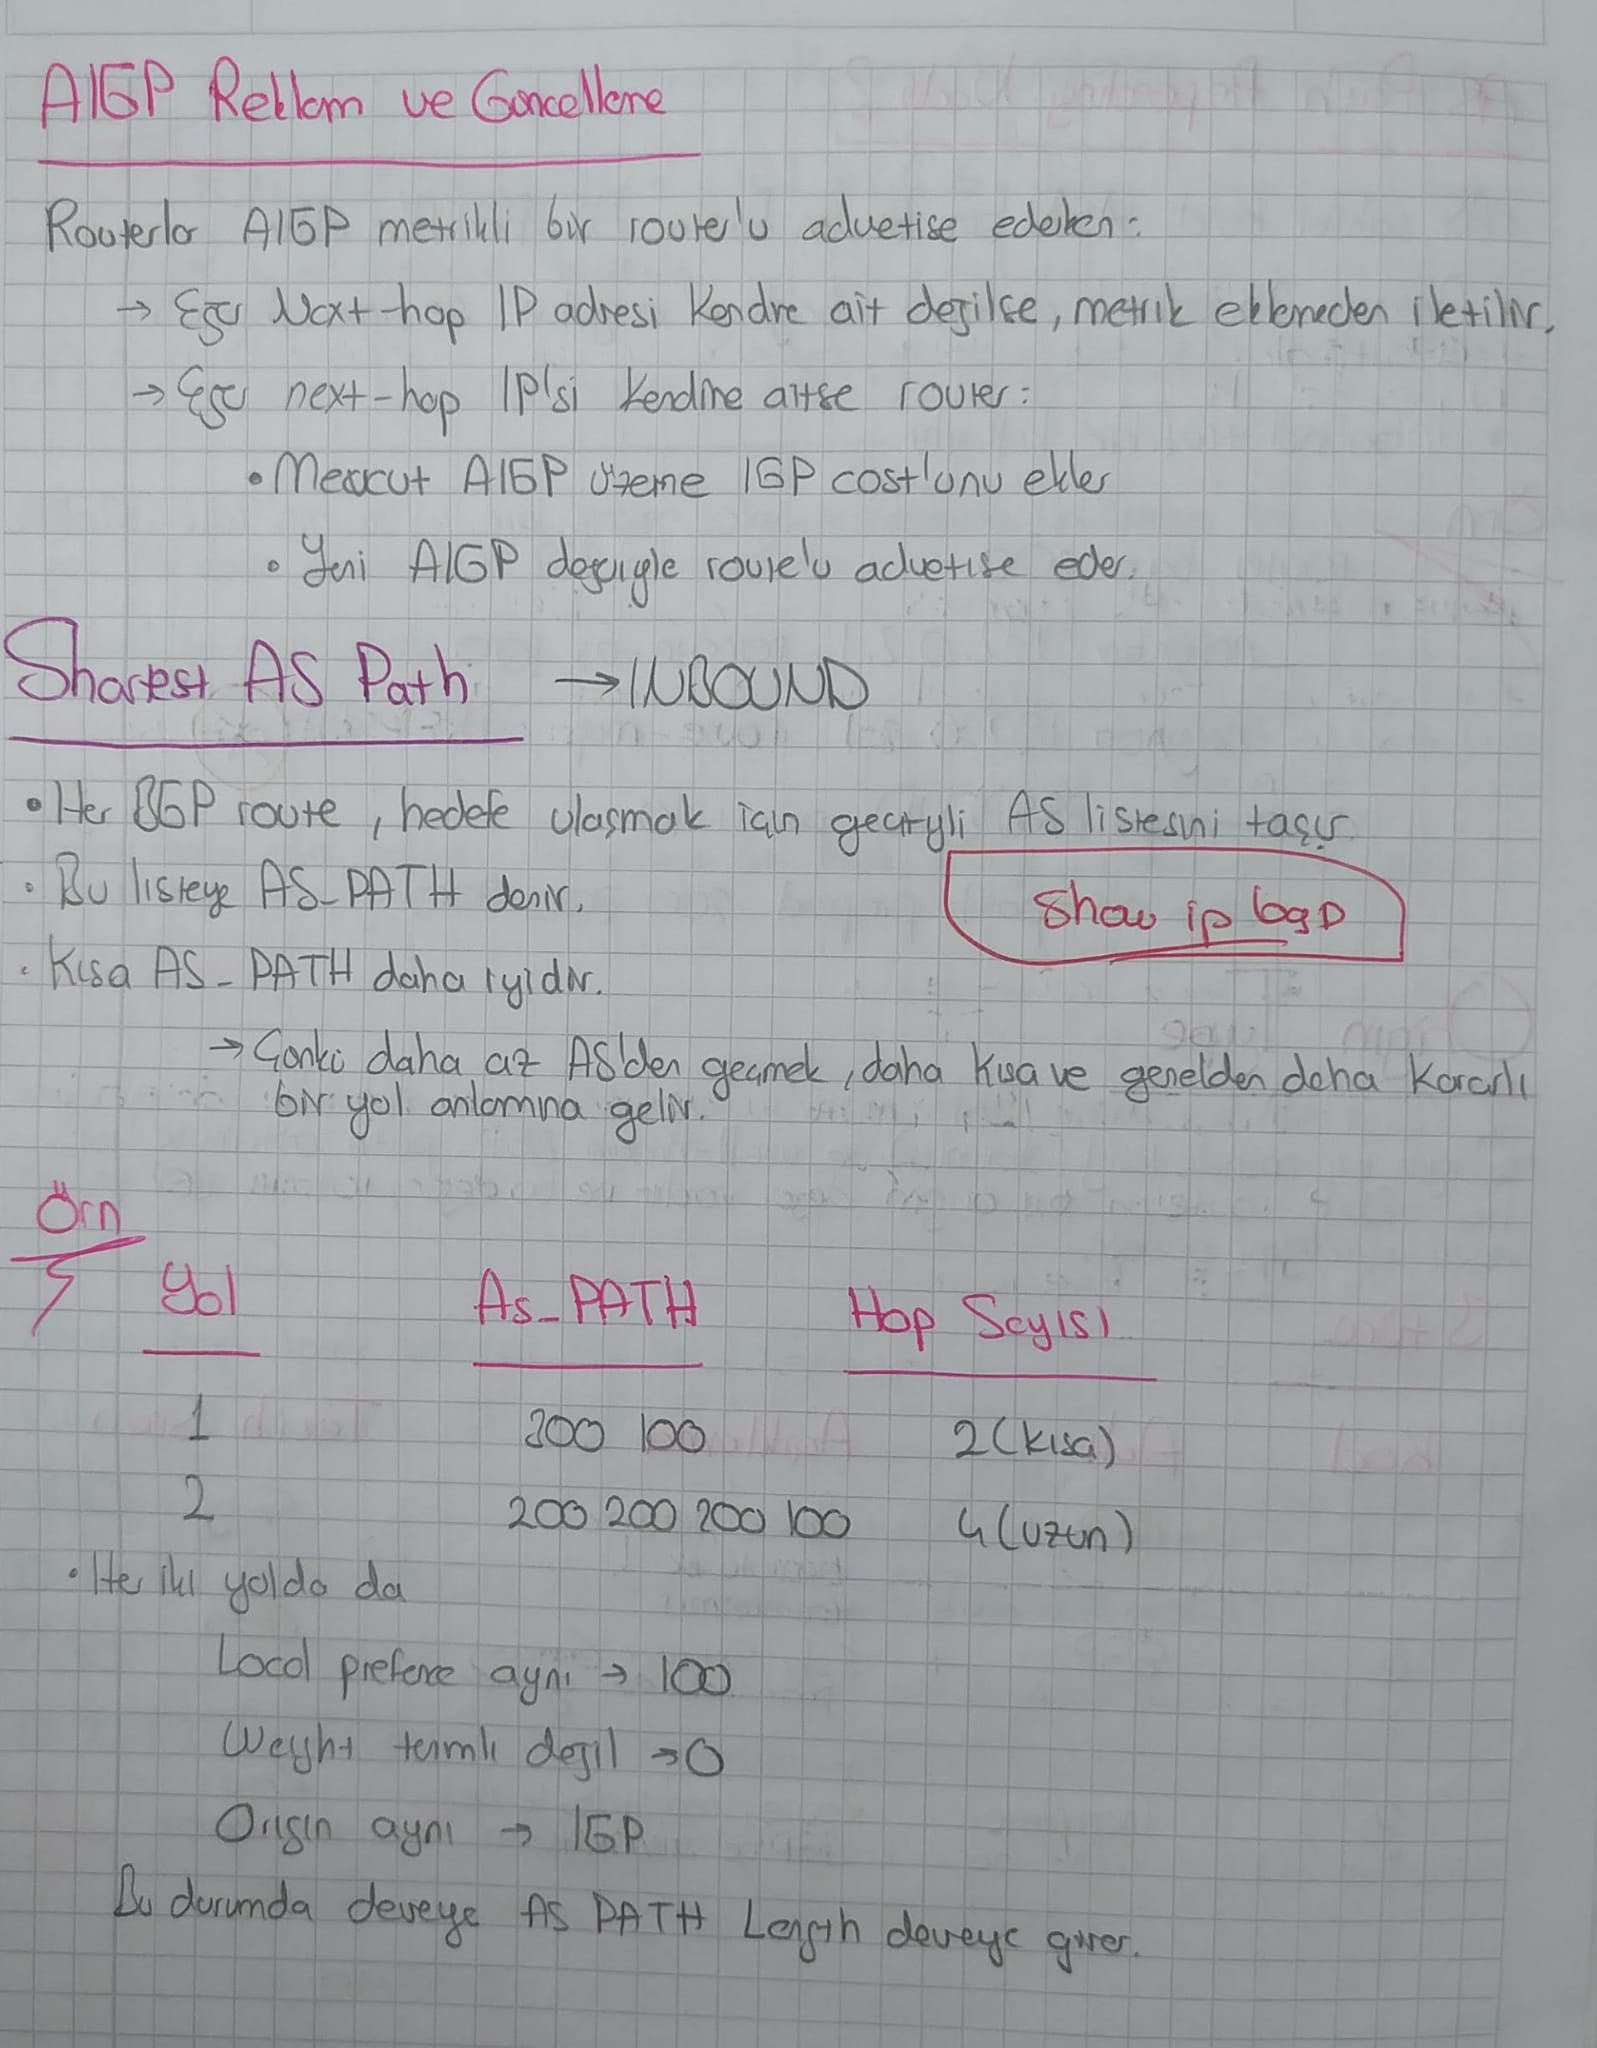 AIGP Reklam ve Güncelleme
Routerlar AIGP metrikli bir route'u advetise ederken:
→ Eğer Next-hop IP adresi kendine ait değilse, metrik eklemeden iletilir.
→ Eğer next-hop IP'si kendine aitse router:
• Mevcut AIGP üzerine IGP cost'unu ekler
• Yeni AIGP değeriyle route'u advetise eder.
Shortest AS Path → INBOUND
• Her BGP route, hedefe ulaşmak için geçtiği AS listesini taşır
• Bu listeye AS_PATH denir.
show ip bgp
• Kısa AS_PATH daha iyidir.
→ Çünkü daha az AS'den geçmek, daha kısa ve genelden daha kararlı
bir yol anlamına gelir.
Örn
Yol As_PATH Hop Sayısı
1 200 100 2 (kısa)
2 200 200 200 100 4 (uzun)
• Her iki yolda da
Local prefence aynı → 100
Weight tanımlı değil → 0
Origin aynı → IGP
Bu durumda devreye AS PATH Length devreye girer.